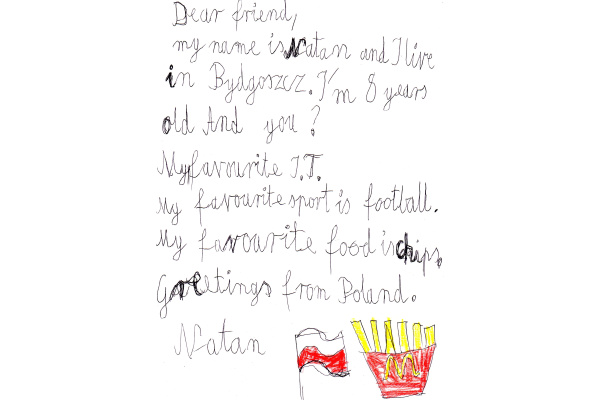 Dear friend,
my name is Natan and I live
in Bydgoszcz. I'm 8 years
old And you?
My favourite I.T.
My favourite sport is football.
My favourite food is chips.
Greetings from Poland.
Natan
M